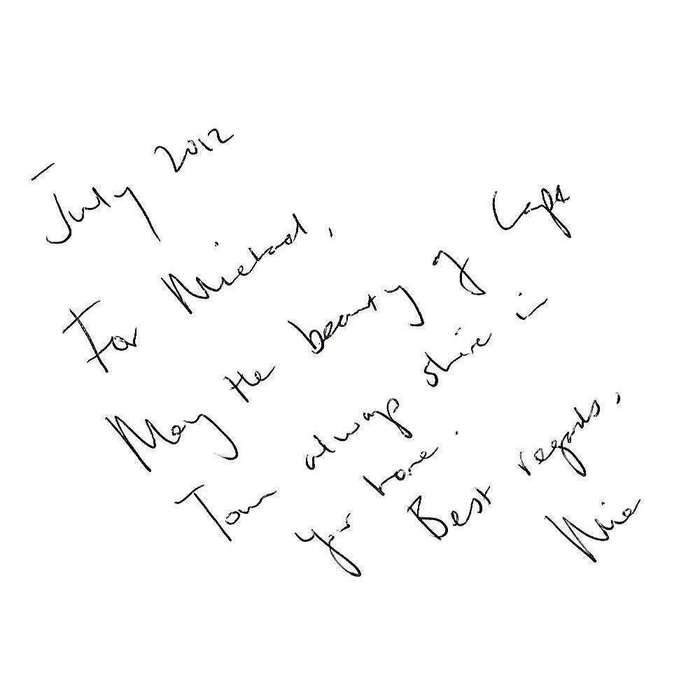 July 2012
For Michael,
May the beauty of Cape
Town always shine in
your home.
Best regards,
Mia